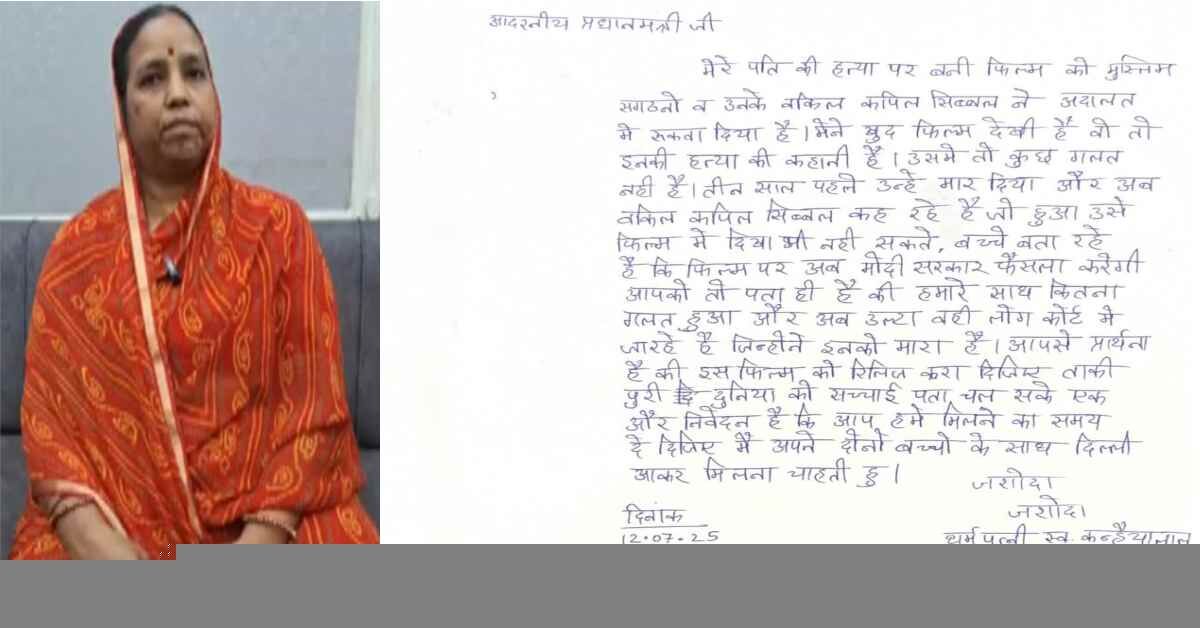 आदरनीय प्रधानमन्त्री जी
मेरे पति की हत्या पर बनी फिल्म को मुस्लिम
सगठनो व उनके वकिल कपिल सिब्बल ने अदालत
मे रुकवा दिया है। मैने खुद फिल्म देखी है वो तो
इनकी हत्या की कहानी है। उसमे तो कुछ गलत
नही है। तीन साल पहले उन्हे मार दिया और अब
वकिल कपिल सिब्बल कह रहे है जो हुआ उसे
फिल्म मे दिखा भी नही सकते, बच्चे बता रहे
है कि फिल्म पर अब मोदी सरकार फैसला करेगी
आपको तो पता ही है की हमारे साथ कितना
गलत हुआ और अब उल्टा वही लोग कोर्ट मे
जारहे है जिन्होने इनको मारा है। आपसे प्रार्थना
है की इस फिल्म को रिलिज करा दिजिए ताकी
पुरी दुनिया को सच्चाई पता चल सके एक
और निवेदन है कि आप हमे मिलने का समय
दे दिजिए मै अपने दोनो बच्चो के साथ दिल्ली
आकर मिलना चाहती हु।
जशोदा
जशोदा
दिनांक
12.07.25
धर्मपत्नी स्व. कन्हैयालाल